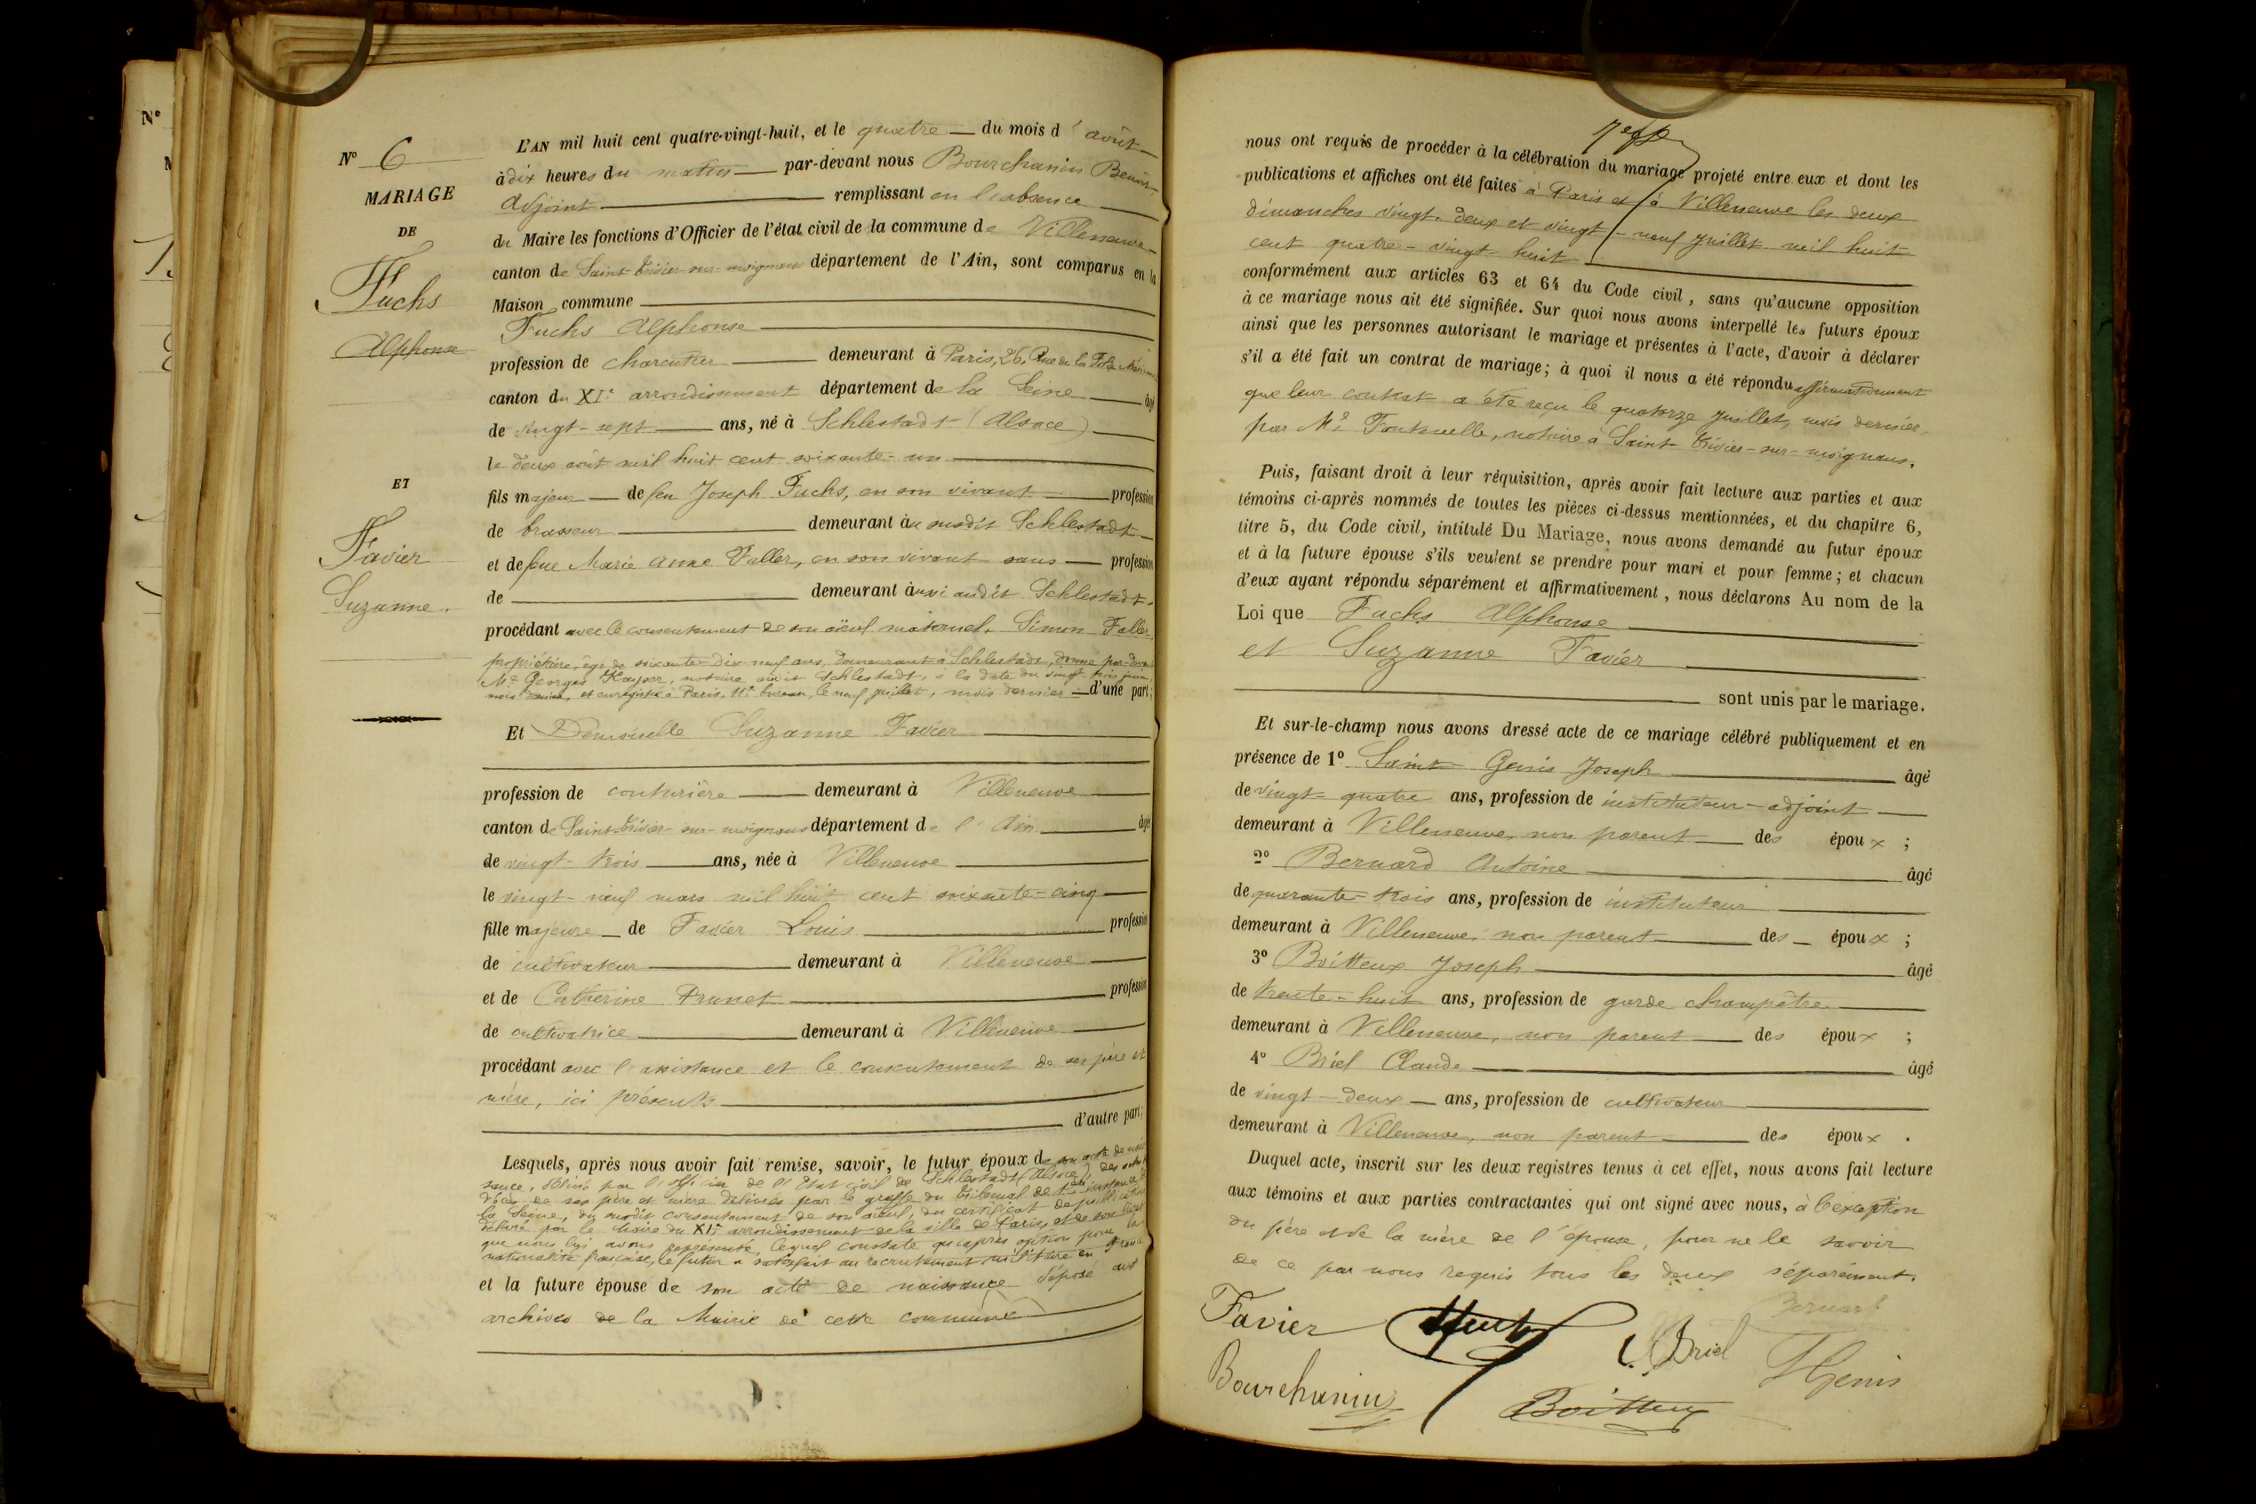 N°
N° 6
MARIAGE
DE
Fuchs
Alphonse
ET
Favier
Suzanne.
L'AN mil huit cent quatre-vingt-huit, et le quatre du mois d'août
à dix heures du matin par-devant nous Bourchanin Benoît
Adjoint remplissant en l'absence
du Maire les fonctions d'Officier de l'état civil de la commune de Villeneuve
canton de Saint-Trivier-sur-moignans département de l'Ain, sont comparus en la
Maison commune
Fuchs Alphonse
profession de charcutier demeurant à Paris, 26, Rue de la Folie
canton du XIe arrondissement département de la Seine âgé
de vingt-sept ans, né à Schlestadt (Alsace)
le deux août mil huit cent soixante-un
fils majeur de feu Joseph Fuchs, en son vivant profession
de brasseur demeurant au susdit Schlestadt
et de feue Marie Anne Faller, en son vivant sans profession
de demeurant aussi audit Schlestadt.
procédant avec le consentement de son aïeul maternel, Simon Faller,
propriétaire, âgé de soixante-dix-neuf ans, demeurant à Schlestadt, donné par-devant
Me Georges Kayser, notaire audit Schlestadt, à la date du vingt trois juin
et enregistré à Paris, 11e bureau, le neuf juillet, mois dernier d'une part;
Et Demoiselle Suzanne Favier
profession de couturière demeurant à Villeneuve
canton de Saint-Trivier-sur-moignans département de l'Ain âgée
de vingt-trois ans, née à Villeneuve
le vingt-neuf mars mil huit cent soixante-cinq
fille majeure de Favier Louis profession
de cultivateur demeurant à Villeneuve
et de Catherine Prunet profession
de cultivatrice demeurant à Villeneuve
procédant avec l'assistance et le consentement de ses père et
mère, ici présents
d'autre part;
Lesquels, après nous avoir fait remise, savoir, le futur époux de son acte de nais
sance, délivré par l'officier de l'Etat civil de Schlestadt (Alsace), des actes de
décès de ses père et mère délivrés par le greffe du tribunal de 1re instance de
la Seine, du susdit consentement de son aïeul, du certificat de publication
délivré par le Maire du XIe arrondissement de la ville de Paris, et de son livret
que nous lui avons représenté, lequel constate qu'après option pour la
nationalité française, le futur a satisfait au recrutement militaire en France
et la future épouse de son acte de naissance déposé aux
archives de la Mairie de cette commune
nous ont requis de procéder à la célébration du mariage projeté entre eux et dont les
publications et affiches ont été faites à Paris et à Villeneuve les deux
dimanches vingt-deux et vingt-neuf juillet mil huit
cent quatre-vingt huit
conformément aux articles 63 et 64 du Code civil, sans qu'aucune opposition
à ce mariage nous ait été signifiée. Sur quoi nous avons interpellé les futurs époux
ainsi que les personnes autorisant le mariage et présentes à l'acte, d'avoir à déclarer
s'il a été fait un contrat de mariage; à quoi il nous a été répondu affirmativement
que leur contrat a été reçu le quatorze juillet, mois dernier
par Me Fontenelle, notaire à Saint-Trivier-sur-moignans.
Puis, faisant droit à leur réquisition, après avoir fait lecture aux parties et aux
témoins ci-après nommés de toutes les pièces ci-dessus mentionnées, et du chapitre 6,
titre 5, du Code civil, intitulé Du Mariage, nous avons demandé au futur époux
et à la future épouse s'ils veulent se prendre pour mari et pour femme; et chacun
d'eux ayant répondu séparément et affirmativement, nous déclarons Au nom de la
Loi que Fuchs Alphonse
et Suzanne Favier
sont unis par le mariage.
Et sur-le-champ nous avons dressé acte de ce mariage célébré publiquement et en
présence de 1° Saint Genis Joseph âgé
de vingt-quatre ans, profession de instituteur-adjoint
demeurant à Villeneuve, non parent des époux ;
2° Bernard Antoine âgé
de quarante-trois ans, profession de instituteur
demeurant à Villeneuve, non parent des époux ;
3° Boitteux Joseph âgé
de trente-huit ans, profession de garde champêtre
demeurant à Villeneuve, non parent des époux ;
4° Briel Claude âgé
de vingt-deux ans, profession de cultivateur
demeurant à Villeneuve, non parent des époux .
Duquel acte, inscrit sur les deux registres tenus à cet effet, nous avons fait lecture
aux témoins et aux parties contractantes qui ont signé avec nous, à l'exception
du père et de la mère de l'épouse, pour ne le savoir
de ce par nous requis tous les deux séparément.
Bernard
Favier Fuchs Briel StGenis
Bourchanin Boitteux